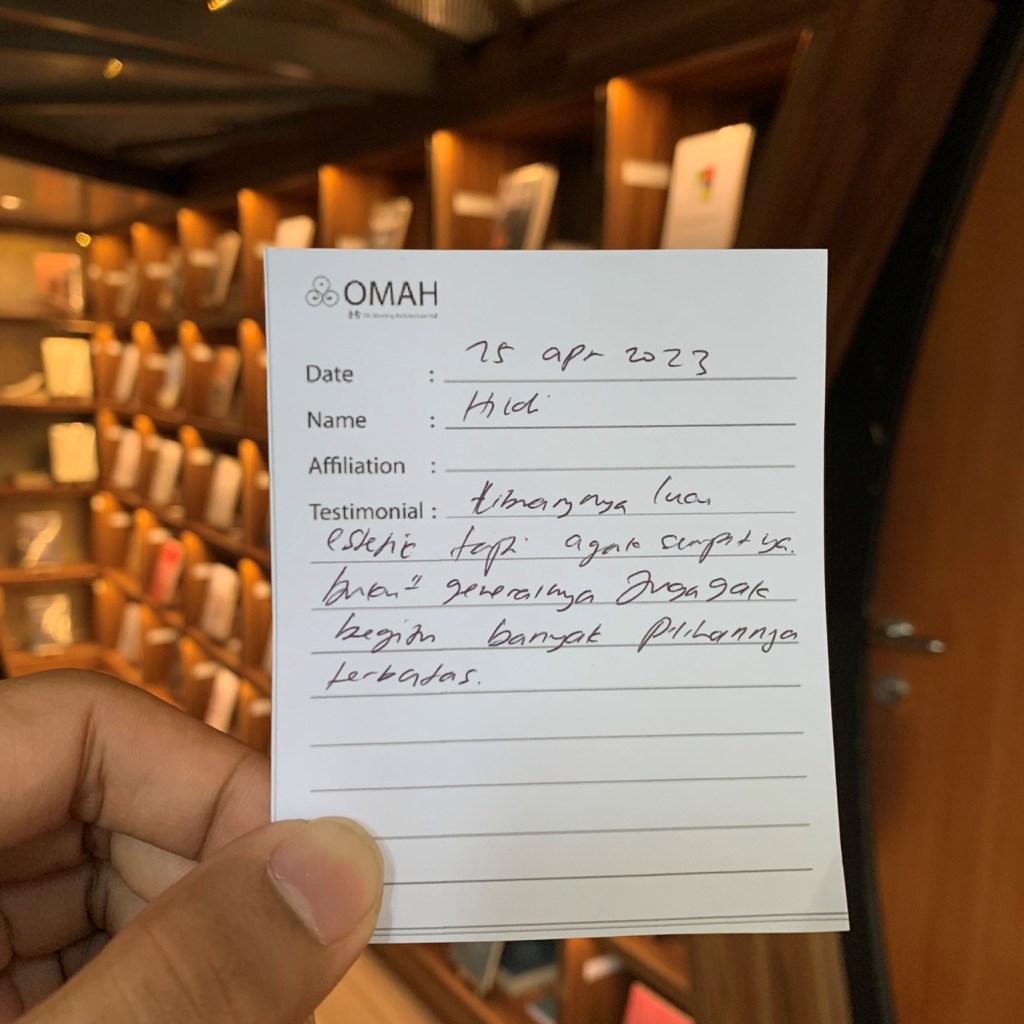 OMAH
Date : 15 apr 2023
Name : Hildi
Affiliation :
Testimonial : librarynya lucu
estetic tapi agak sempit ya.
buku" generalnya Juga gak
begitu banyak pilihannya
terbatas.